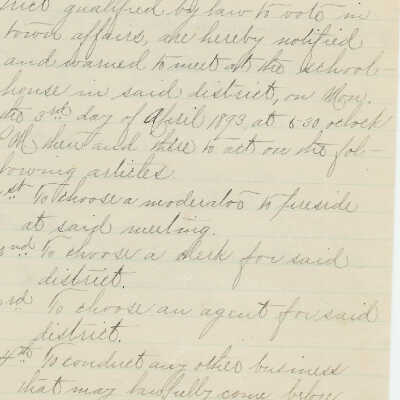 trict qualified by law to vote in
town affairs, are hereby notified
and warned to meet at the school-
house in said district, on Mon.
the 3rd day of April 1893, at 6.30, oclock
P.M. then and there to act on the fol-
lowing articles.
1st To choose a moderator to preside
at said meeting.
2nd To choose a clerk for said
district.
3rd To choose an agent for said
district.
4th To conduct any other business
that may lawfully come before